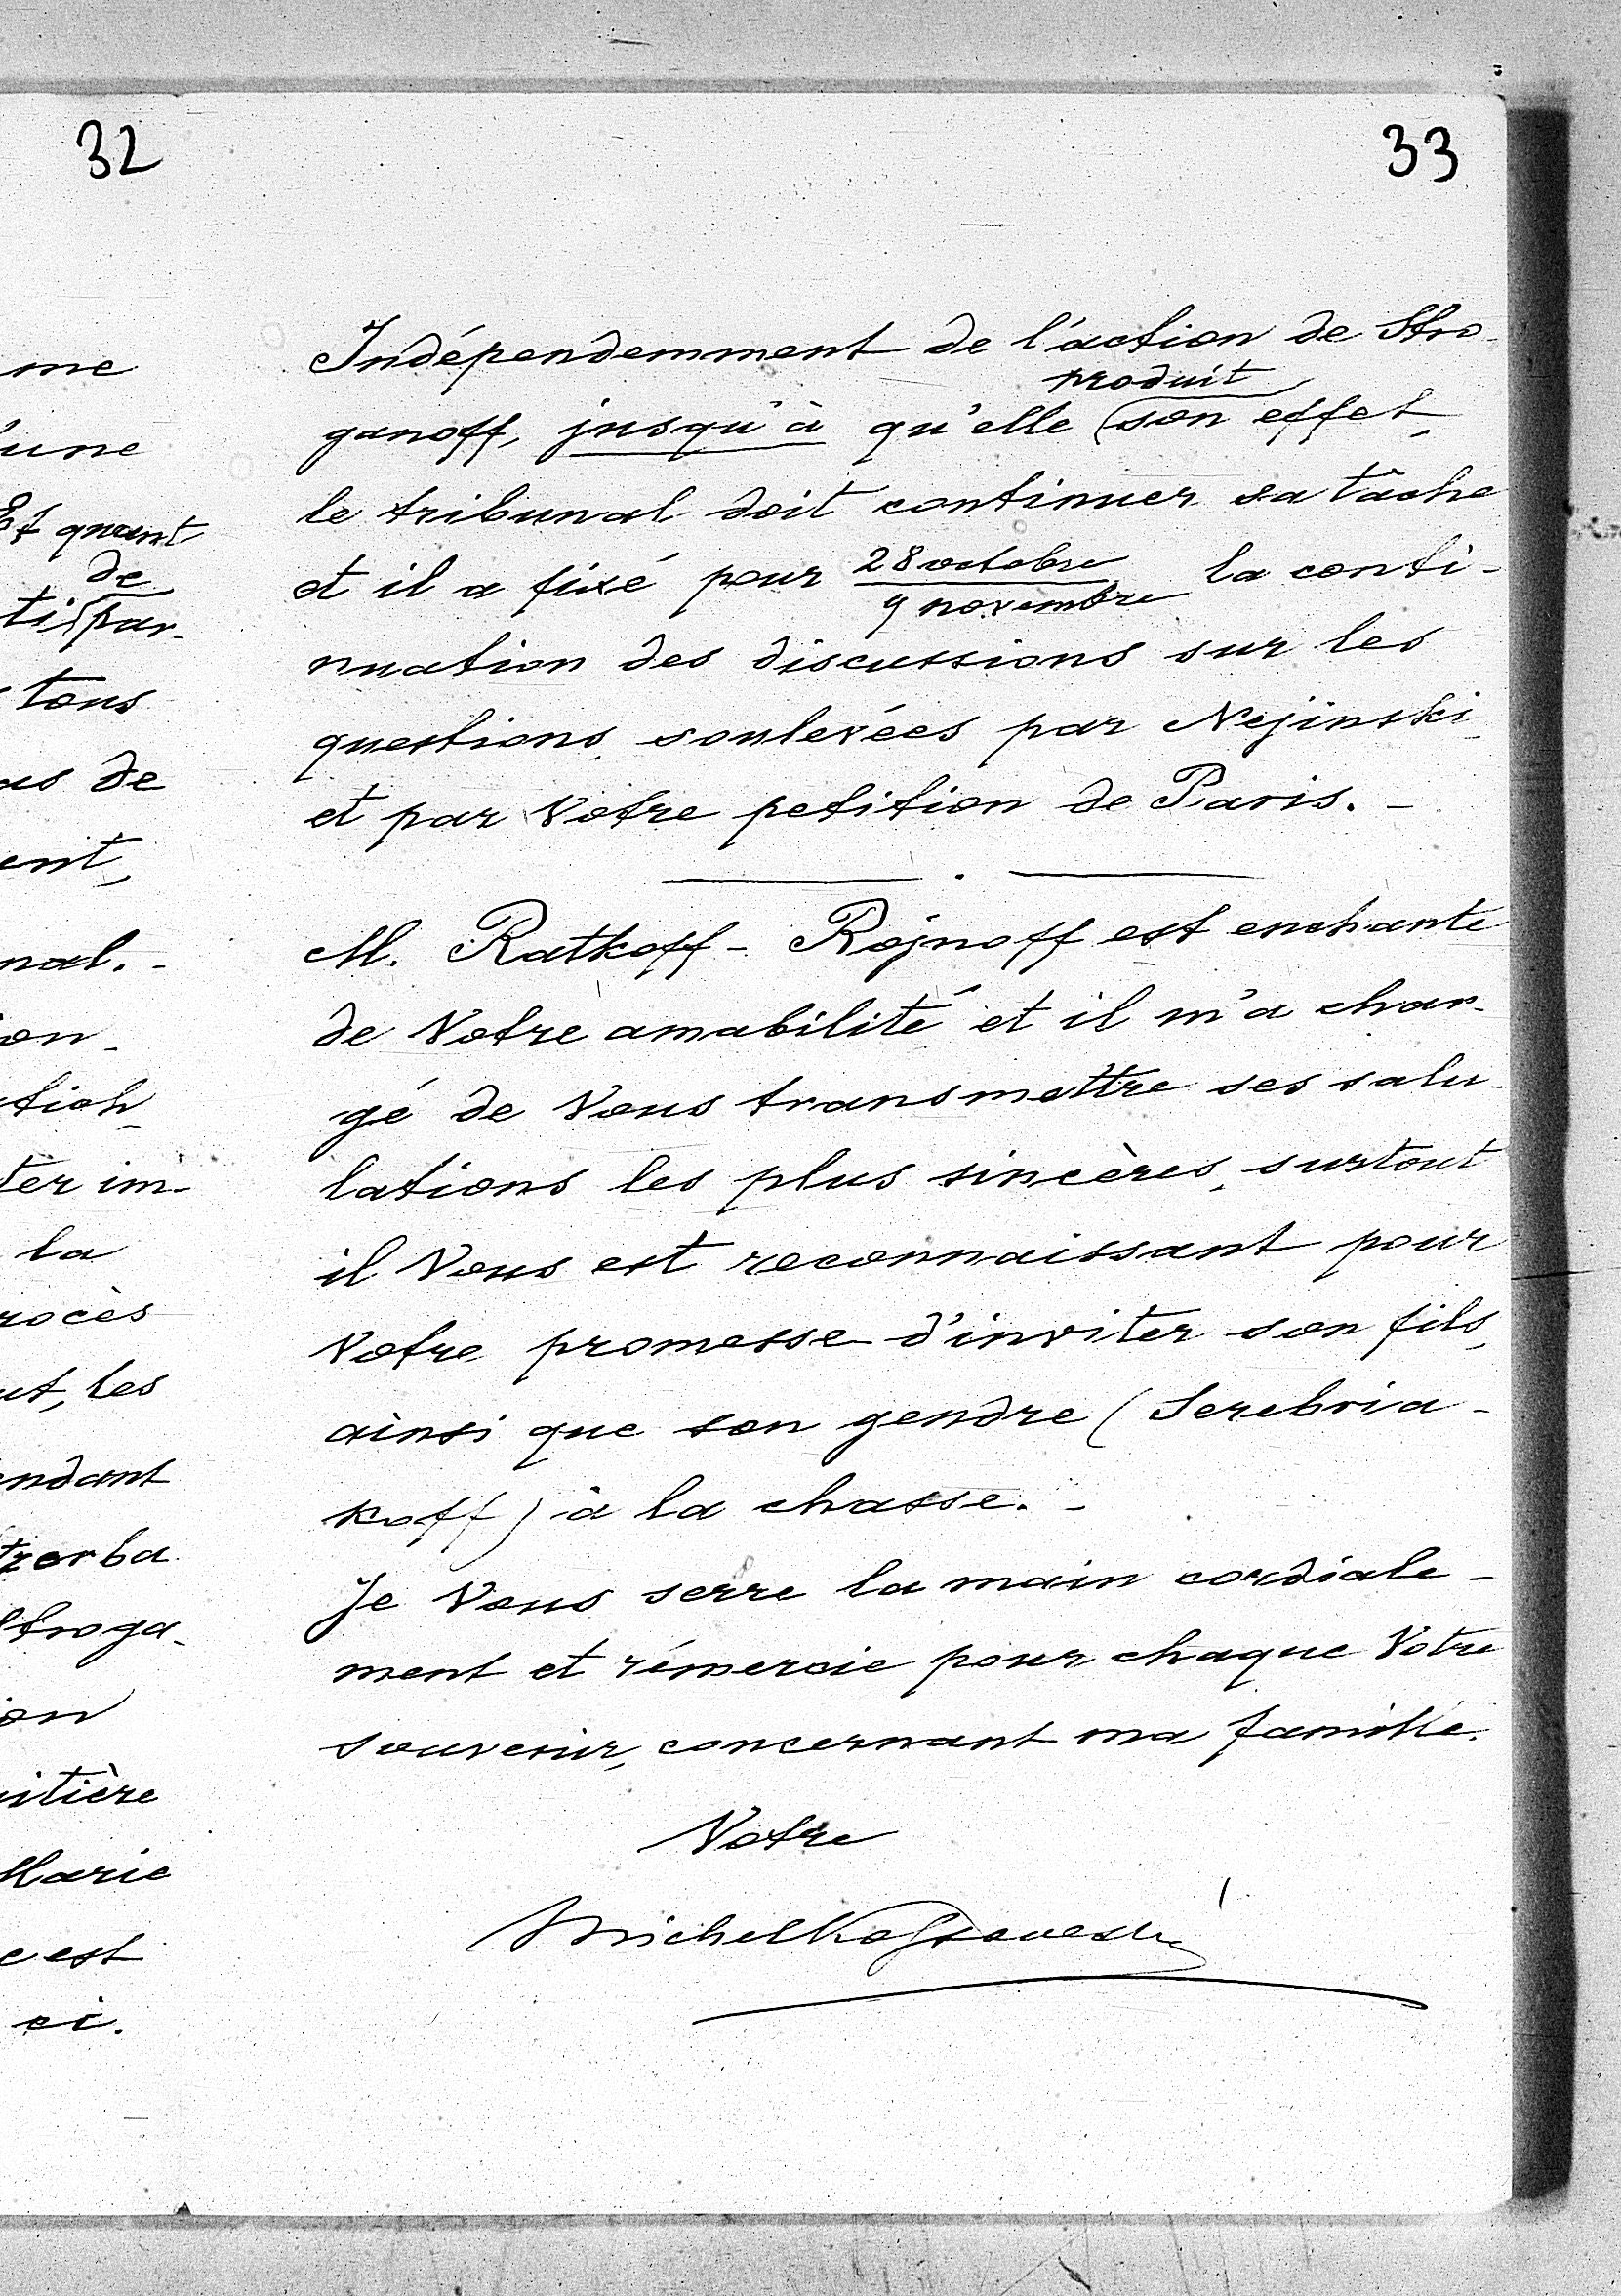 32
me
'une
Et quant
de
ti par-
tous
us de
ent,
nal. -
on-
tion,
ter im-
la
rocès
ut, les
endant
tzerba
Stroga-
on
itière
Marie
c est
ci.
33
Indépendemment de l'action de Stro-
produit
ganoff, jusqu'à qu'elle (son effet,
le tribunal doit continuer sa tâche
et il a fixé pour 28 octobre la conti-
9 novembre
nuation des discussions sur les
questions soulevées par Nejinski
et par Votre petition de Paris. -
M. Ratkoff - Rojnoff est enchanté
de Votre amabilité et il m'a char-
gé de Vous transmettre ses salu-
lations les plus sincères, surtout
il Vous est reconnaissant pour
Votre promesse d'inviter son fils,
ainsi que son gendre (Serebria-
koff) à la chasse. -
Je Vous serre la main cordiale-
ment et rémercie pour chaque Votre
souvenir, concernant ma famille.
Votre
Michel